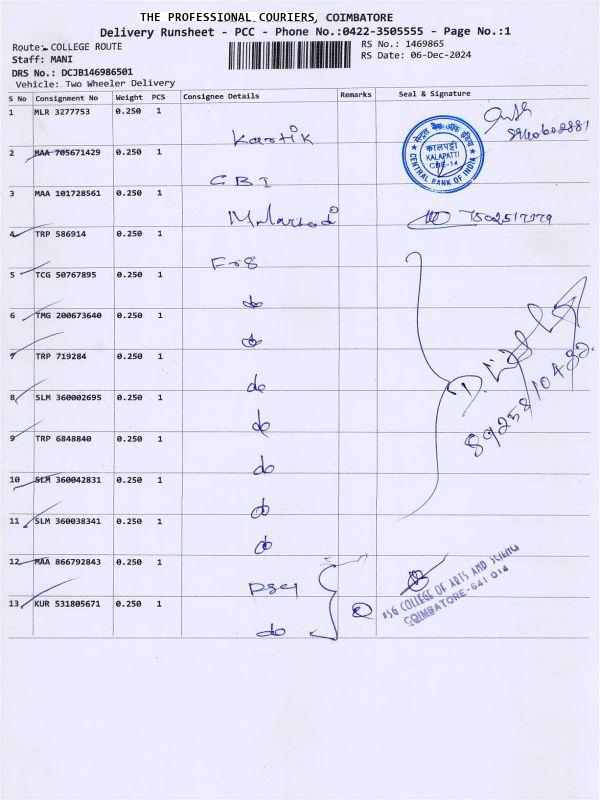 THE PROFESSIONAL COURIERS, COIMBATORE
Delivery Runsheet - PCC - Phone No.:0422-3505555 - Page No.:1
Route:- COLLEGE ROUTE
RS No.: 1469865
Staff: MANI
RS Date: 06-Dec-2024
DRS No.: DCJB146986501
Vehicle: Two Wheeler Delivery
S No Consignment No Weight PCS Consignee Details Remarks Seal & Signature
1 MLR 3277753 0.250 1
Kartik
2 MAA 705671429 0.250 1
सेन्ट्रल बैंक ऑफ इंडिया
कालपट्टी
KALAPATTI
CBE-14
CENTRAL BANK OF INDIA
CBI
3 MAA 101728561 0.250 1
7502517379
4 TRP 586914 0.250 1
5 TCG 50767895 0.250 1
do
6 TMG 200673640 0.250 1
do
7 TRP 719284 0.250 1
do
8 SLM 360002695 0.250 1
do
8925810482
9 TRP 6848840 0.250 1
do
10 SLM 360042831 0.250 1
do
11 SLM 360038341 0.250 1
do
12 MAA 866792843 0.250 1
PSG COLLEGE OF ARTS AND SCIENCE
COIMBATORE-641 014
13 KUR 531805671 0.250 1
do